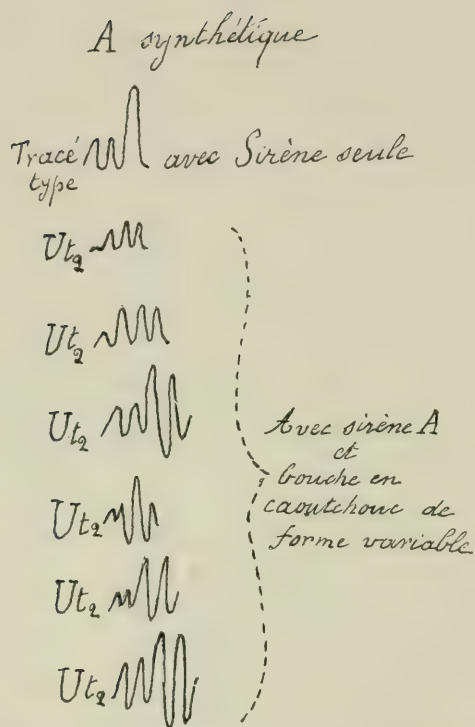 A synthétique
Tracé type avec Sirène seule
Ut2
Ut2
Ut2
Ut2
Ut2
Ut2
Avec sirène A
et
bouche en
caoutchouc de
forme variable